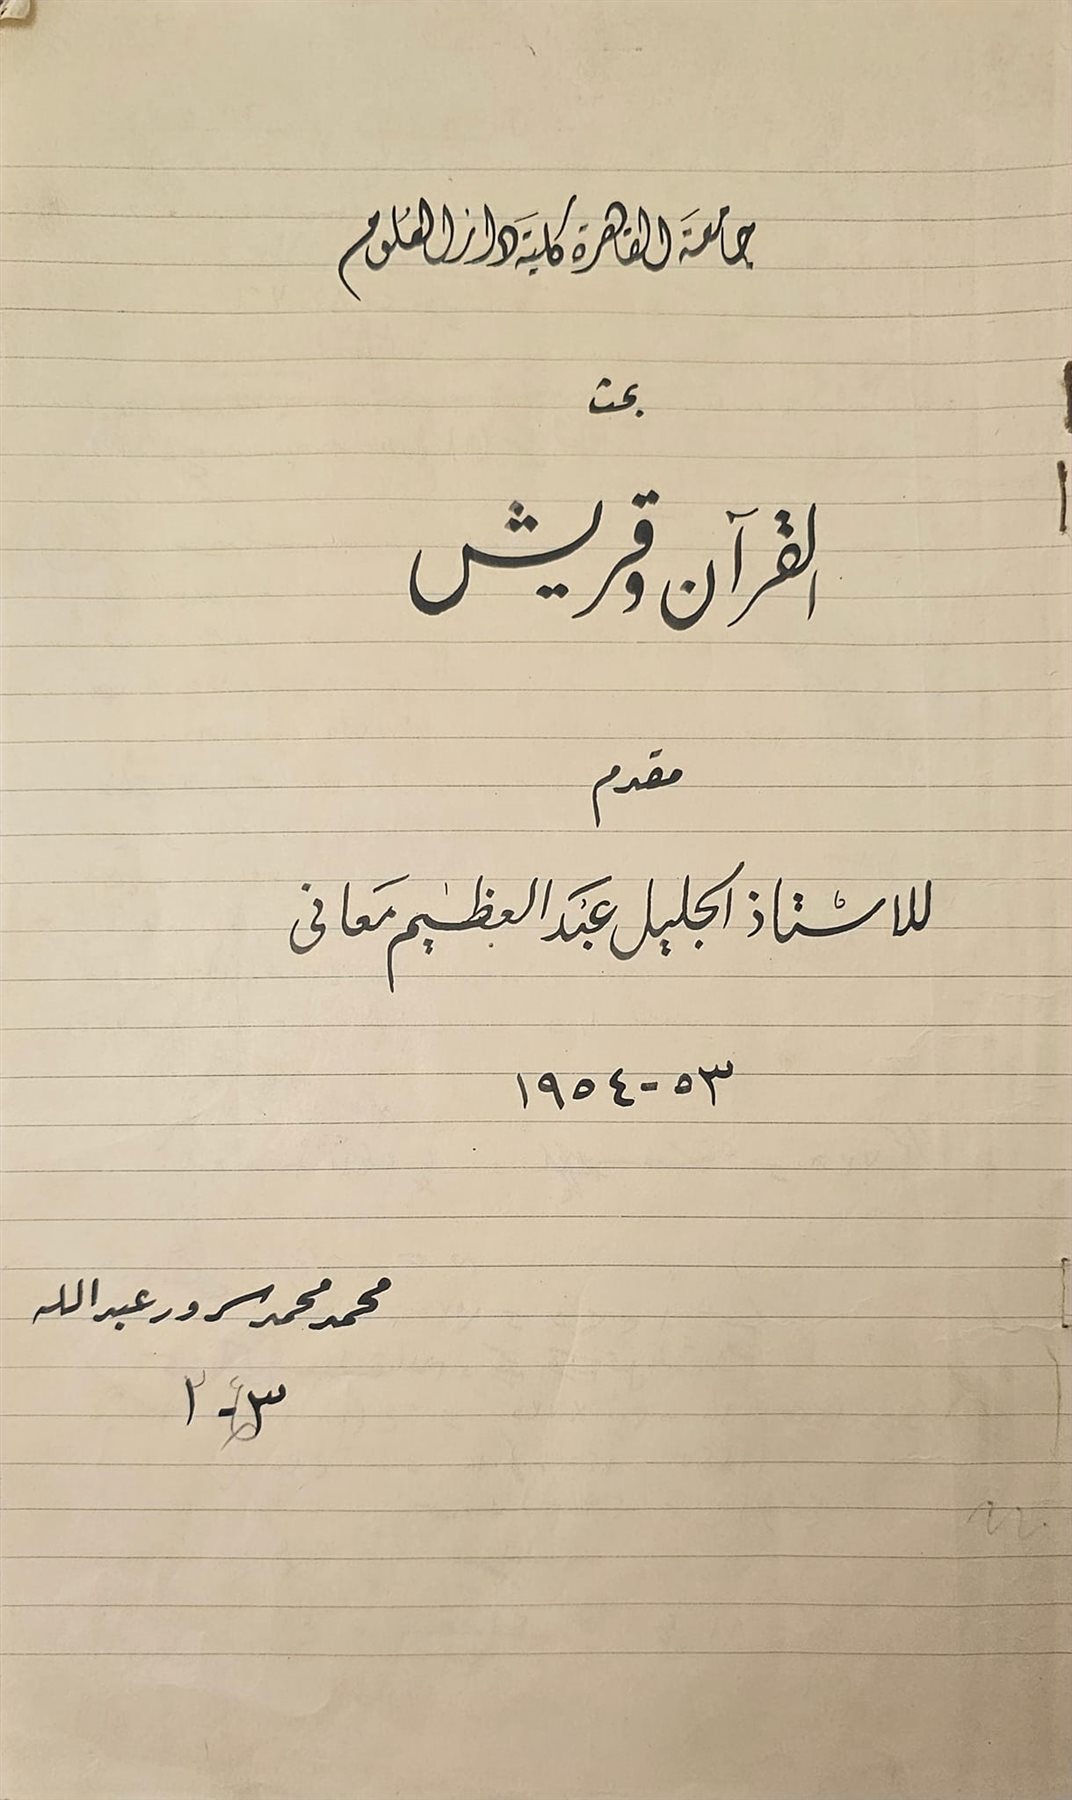 جامعة القاهرة كلية دار العلوم
بحث
القرآن وقريش
مقدم
للاستاذ الجليل عبد العظيم معانى
٥٣-١٩٥٤
محمد محمد سرور عبد الله
٣-٢